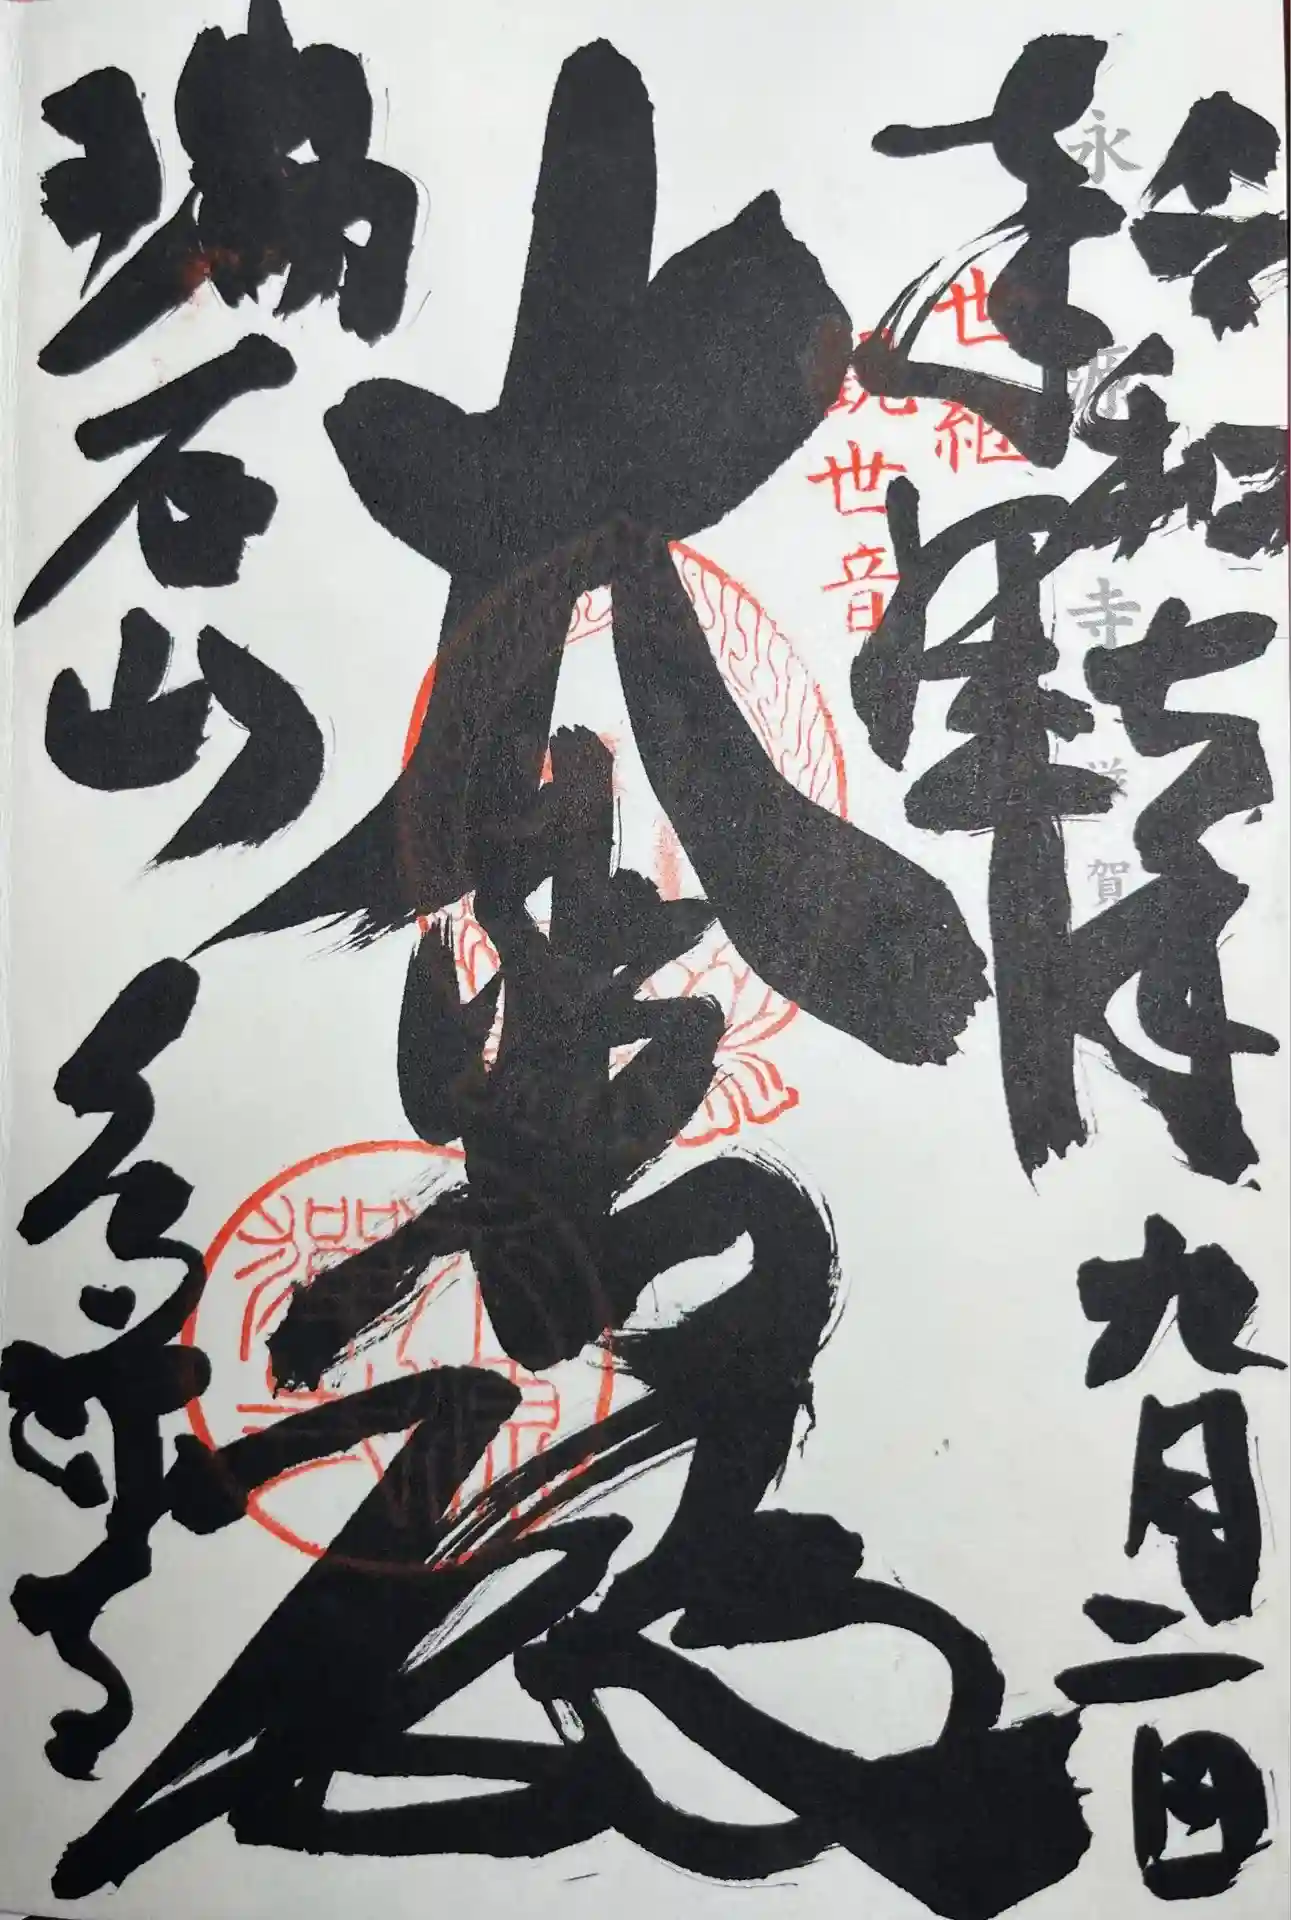 令和七年九月二日
永源寺 滋賀
奉拝
世継
観世音
大悲殿
瑞石山 永源寺